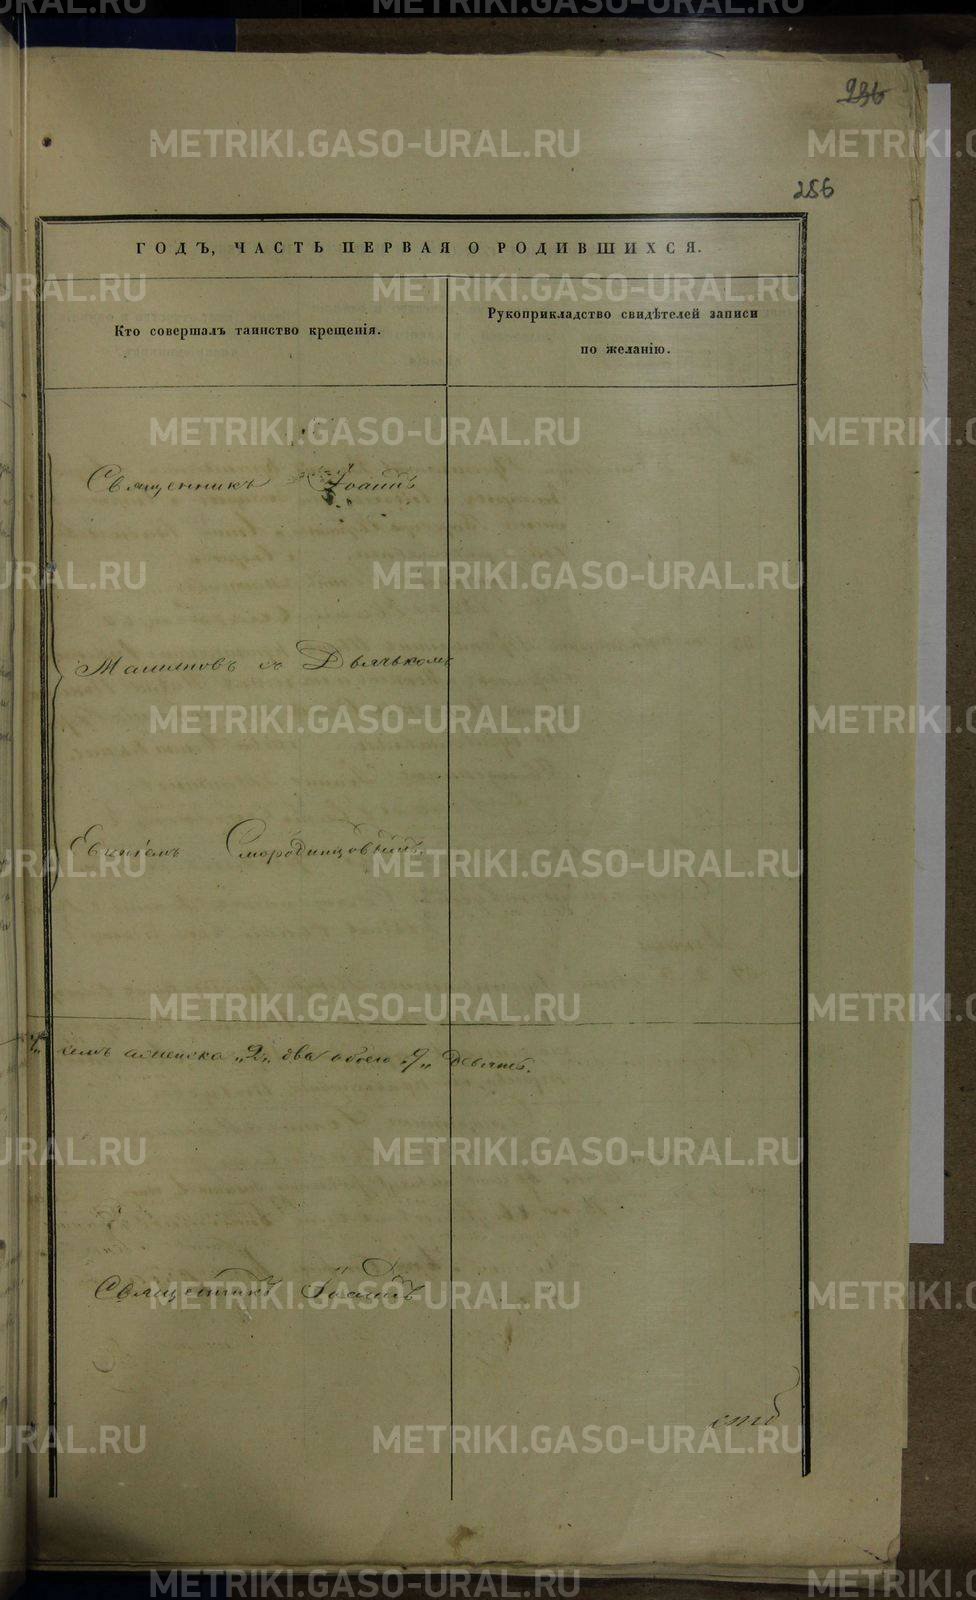 236
286
ГОДЪ, ЧАСТЬ ПЕРВАЯ О РОДИВШИХСЯ.
Кто совершалъ таинство крещенія.
Рукоприкладство свидѣтелей записи
по желанію.
Священникъ Іоаннъ
съ Дьячькомъ
Евгніемъ Смородинцовымъ.
семъ женска „2„ два обоего „9„ девять.
Священникъ Іоаннъ
METRIKI.GASO-URAL.RU